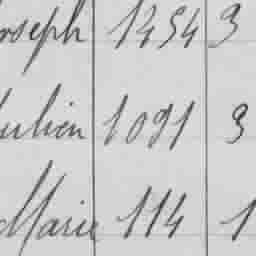 Joseph 1254 3
Julien 1091 3
Marie 114 1